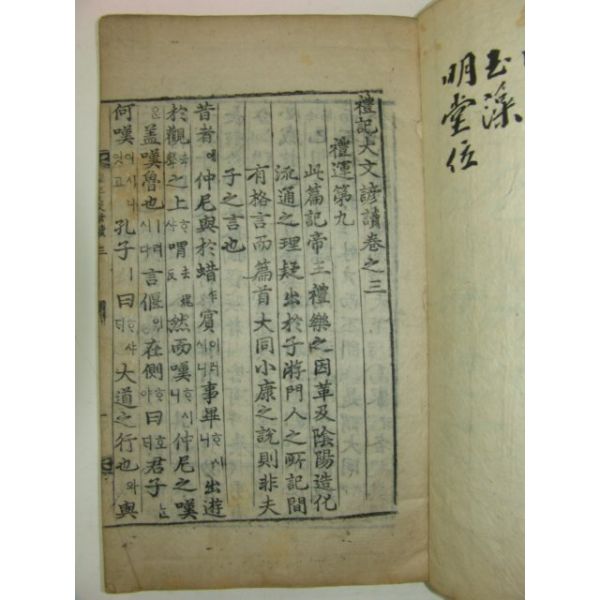 玉藻
明堂位
禮記大文諺讀卷之三
禮運第九
此篇記帝王禮樂之因革及陰陽造化
流通之理疑出於子游門人之所記間
有格言而篇首大同小康之說則非夫
子之言也
昔者에仲尼與於蜡賓이러시니事畢出遊
於觀去聲之上喟去媿反然而嘆ᄒᆞ시니仲尼之嘆은
盖嘆魯也ㅣ러시다言偃이在側曰君子ᄂᆞᆫ
何嘆이시니잇고孔子ㅣ曰大道之行也와與